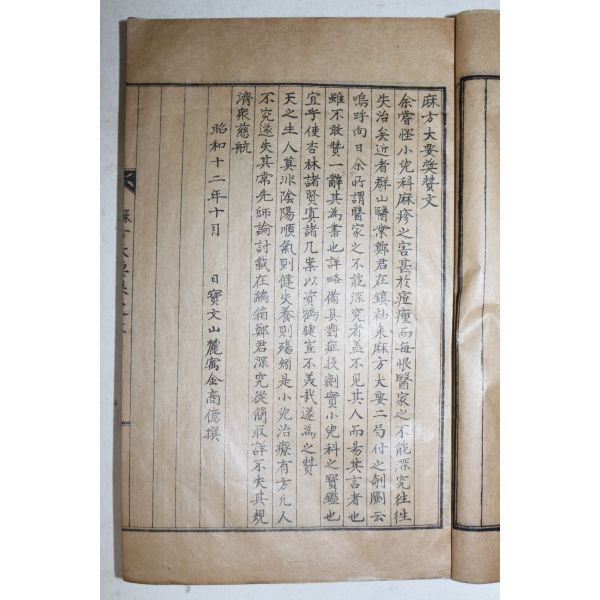 麻方大要獎贊文
余嘗怪小兒科麻疹之害甚於痘瘡而每恨醫家之不能深究往往
失治矣近者群山醫業鄭君在鎮袖来麻方大要二局付之剞劂云
嗚呼向日余所謂醫家之不能深究者盖不見其人而易其言者也
雖不敢贊一辭其為書也詳略備具對症投劑實小兒科之寶鑑也
宜乎使杏林諸賢寘諸几案以資鶴豈不美哉遂為之贊
天之生人莫非陰陽順氣則健失養則殤矧是小兒治療有方凡人
不究遂失其常先師論討載在編緗鄭君深究從簡取詳不失其規
濟衆慈航
昭和十二年十月 日寶文山麓寓金商億撰
麻方大要